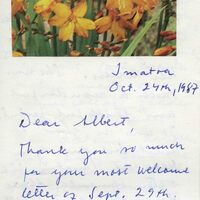 Imatra
Oct. 24th, 1987
Dear Albert,
Thank you so much
for your most welcome
letter of Sept. 29th.